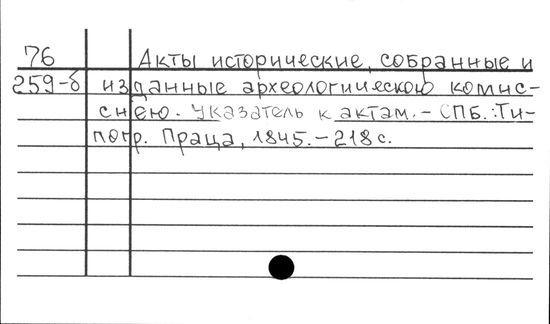 76 Акты исторические, собранные и
259-б изданные археологическою комис-
сиею. Указатель к актам. - СПб.: Ти-
погр. Праца, 1845. - 218 с.